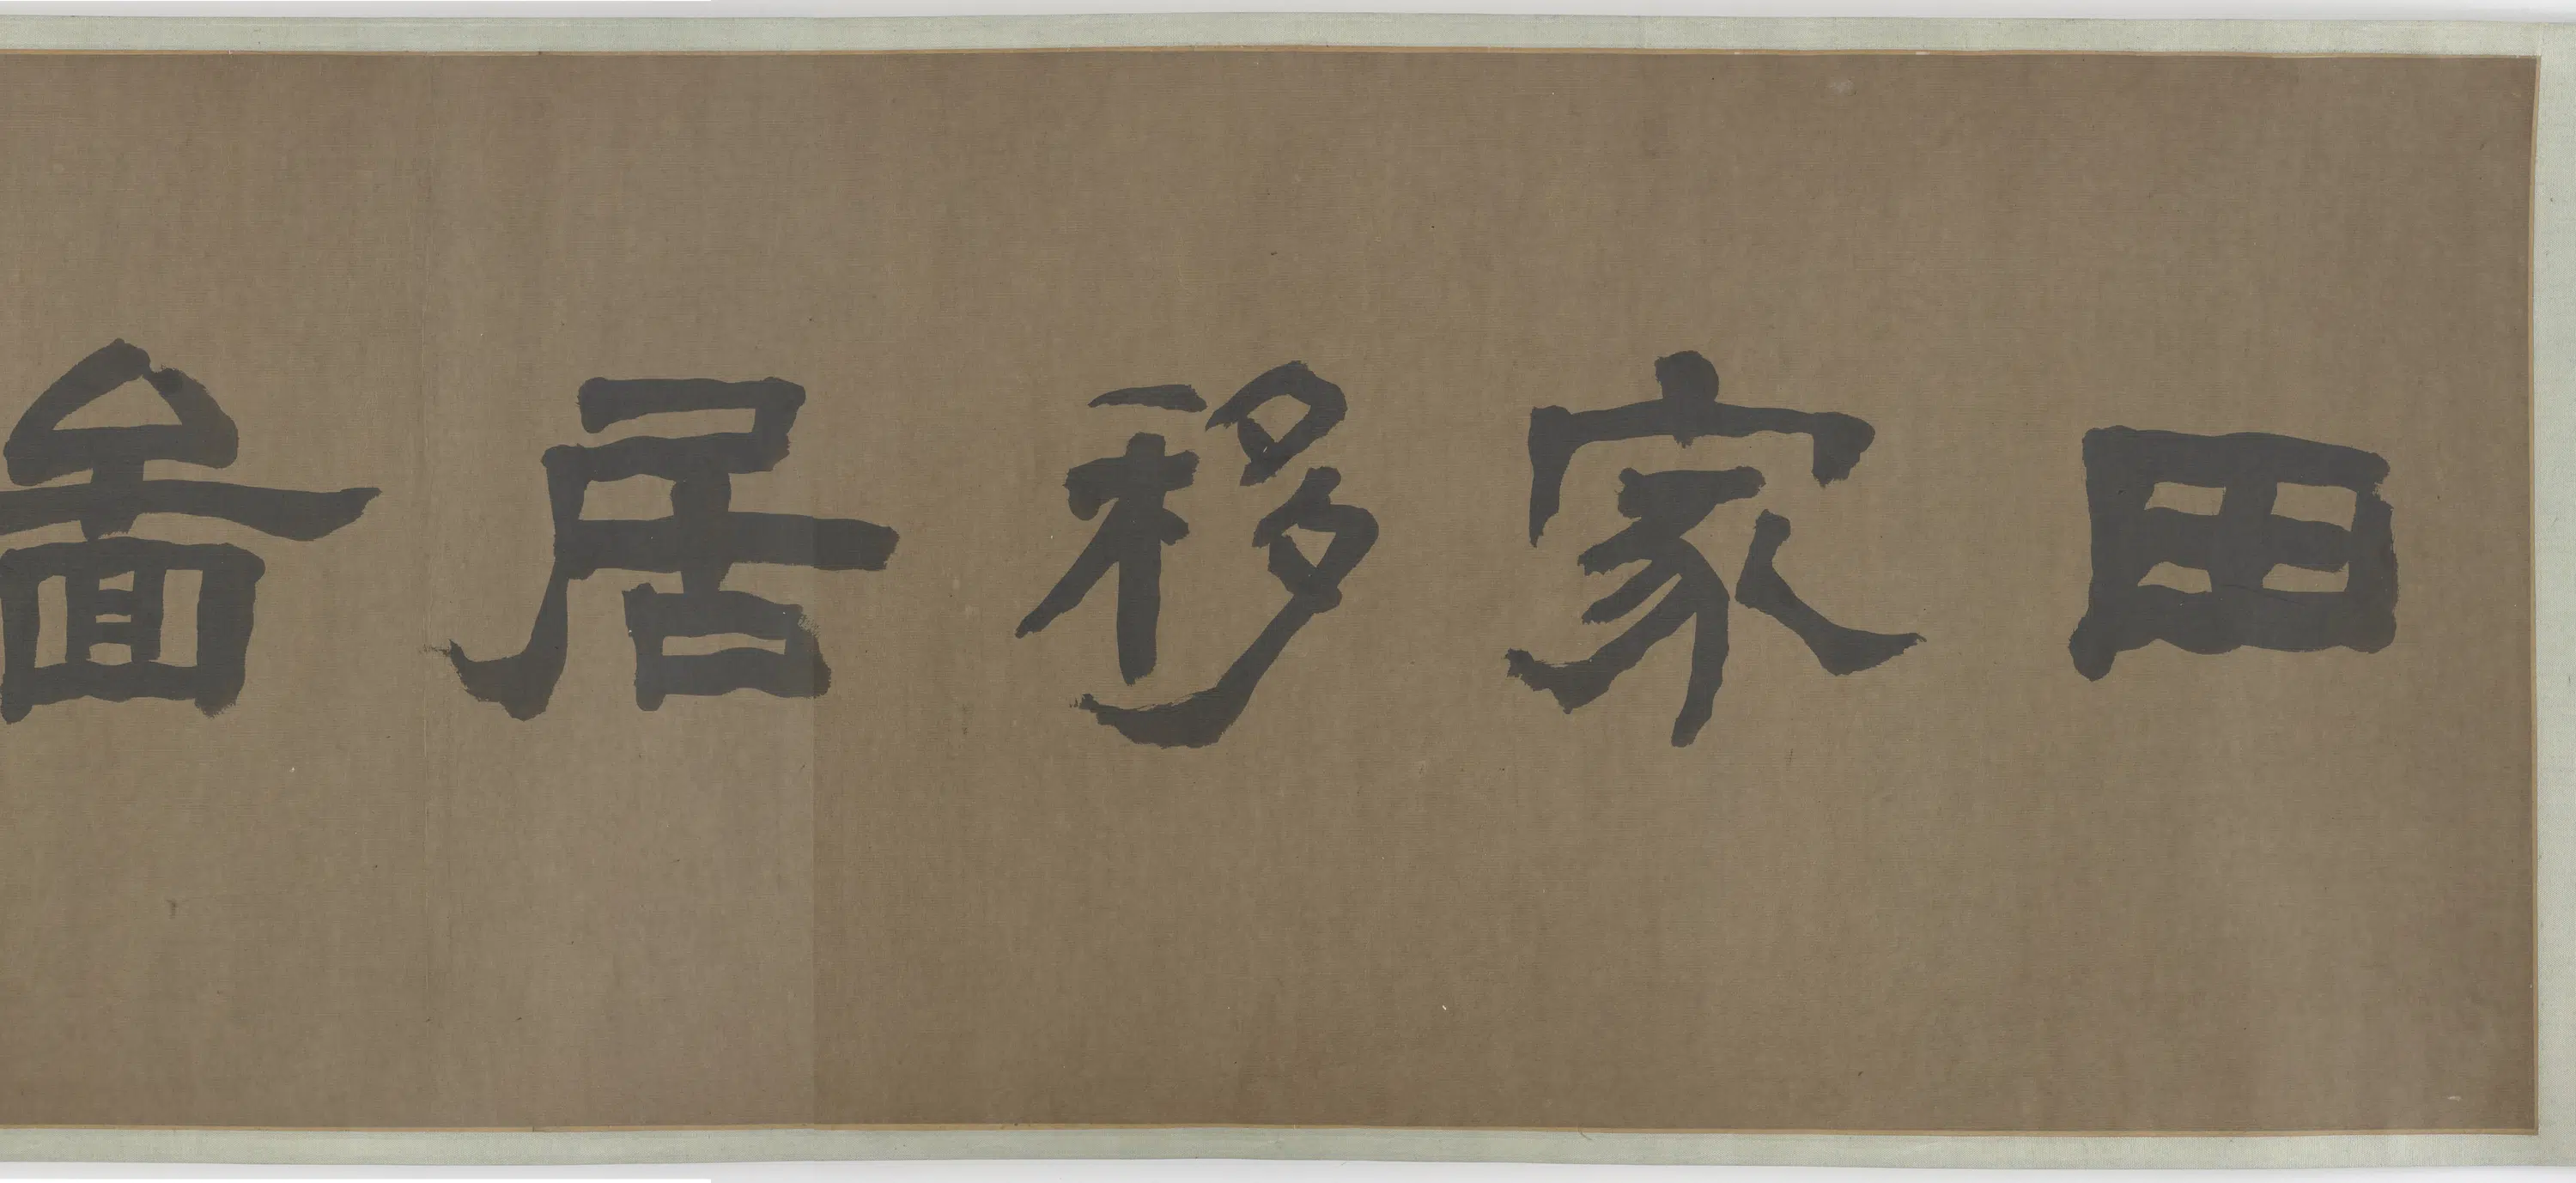 田家移居啚